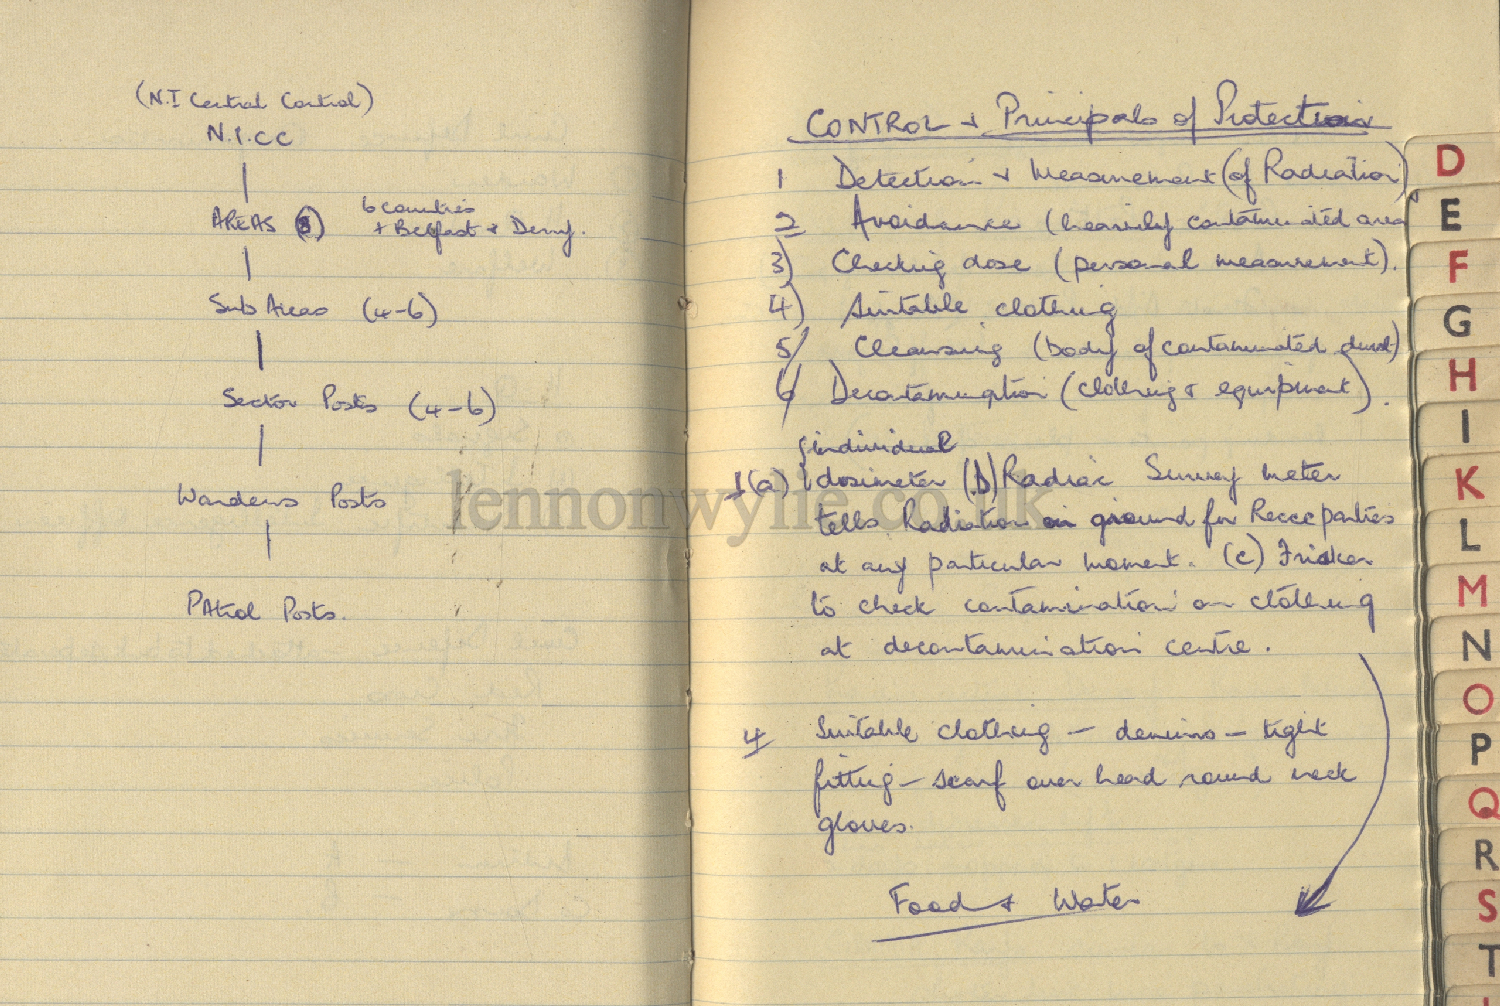 (N.I Central Control)
N.I.CC
AREAS (8) 6 counties
+ Belfast & Derry.
Sub Areas (4-6)
Sector Posts (4-6)
Wardens Posts
PAtrol Posts.
CONTROL + Principals of Protection
1 Detection + Measurement (of Radiation)
2 Avoidance (heavily contaminated area
3) Checking dose (personal measurement).
4) Suitable clothing
5/ Cleansing (body of contaminated dust)
6/ Decontamination (clothing & equipment).
individual
1(a) dosimeter (b) Radiac Survey meter
tells Radiation on ground for Recce parties
at any particular moment. (c) Fricker
to check contamination on clothing
at decontamination centre.
4 Suitable clothing - denims - tight
fitting - scarf over head round neck
gloves.
Food & Water
D
E
F
G
H
I
K
L
M
N
O
P
Q
R
S
T
lennonwylie.co.uk